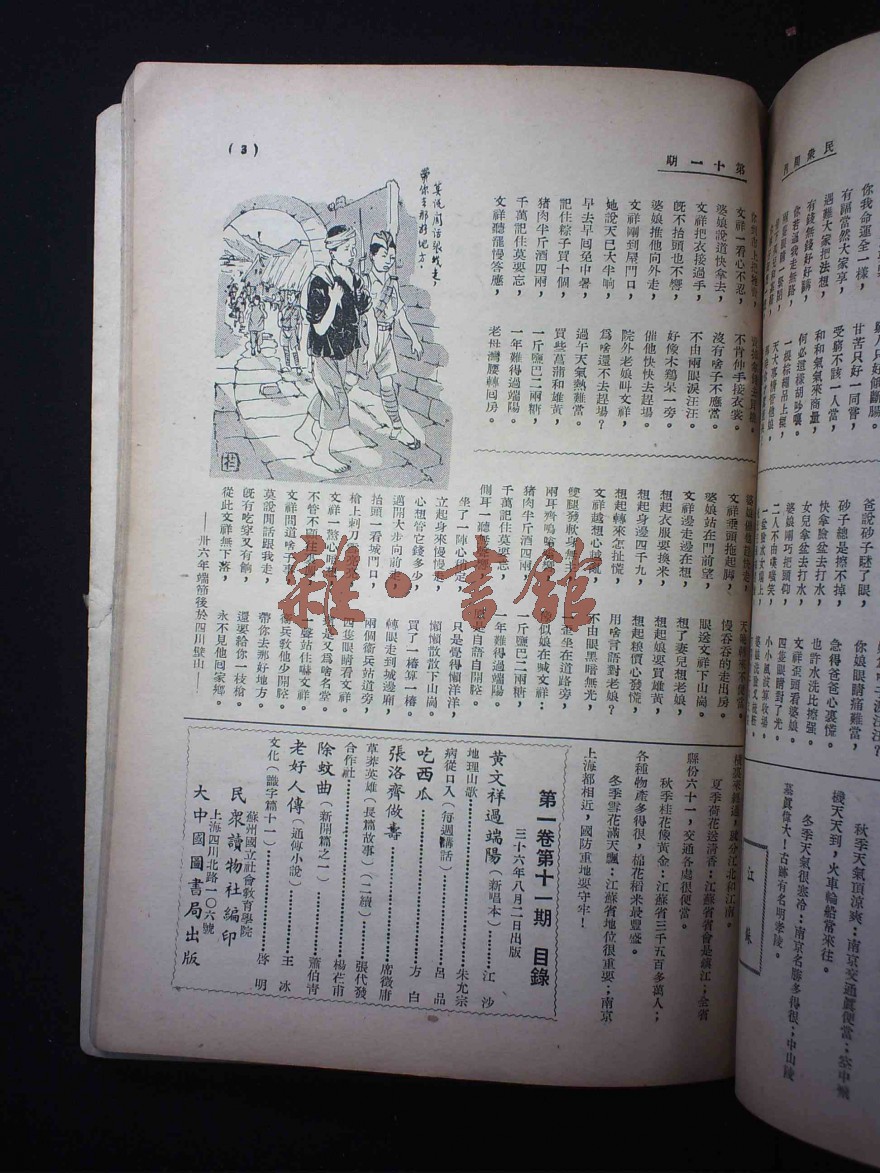 (3)
第十一期
民衆周刊
莫說閒話跟我走，
帶你去那好地方。
文祥一看心不忍，
婆娘說道快拿去，
文祥把衣接過手，
旣不抬頭也不響，
婆娘推他向外走，
文祥剛到屋門口，
她說天已大半晌，
早去早囘免中暑，
記住粽子買十個，
猪肉半斤酒四兩，
千萬記住莫要忘，
文祥聽罷慢答應，
不肯伸手接衣裳。
沒有啥子不應當。
不由兩眼淚汪汪。
好像木鷄呆一旁。
催他快快去趕場。
院外老娘叫文祥，
爲啥還不去趕場？
過午天氣熱難當。
買些菖蒲和雄黃，
一斤鹽巴二兩糖，
一年難得過端陽。
老母灣腰轉囘房。
文祥垂頭拖起脚，
婆娘站在門前望，
文祥邊走邊在想，
想起衣服要換米，
想起身邊四千九，
想起轉來怎扯慌，
文祥越想心越亂，
雙腿發軟身無
兩耳齊鳴
猪肉半斤酒四兩，
千萬記住莫要忘，
側耳一聽
坐了一陣心
立起身來慢慢走，
心想管它錢多少，
邁開大步向前走，
抬頭一看城門口，
槍上刺刀
文祥一熬心
不管不顧往
文祥問道啥子事
莫說閒話跟我走，
旣有吃穿又有餉，
從此文祥無下落，
慢吞吞的走出房。
眼送文祥下山崗。
想了妻兒想老娘，
想起娘要買雄黃，
想起糧價心發慌，
用啥言語對老娘？
不由眼黑暗無光，
一歪坐在道路旁，
好似娘在喊文祥：
一斤鹽巴二兩糖，
一年難得過端陽。
自言自語自開腔。
只是覺得懶洋洋，
懶懶散散下山崗。
買了一樁算一樁。
轉眼走到城邊廂，
兩個衞兵站道旁，
四隻眼睛看文祥。
又爲啥名堂
一聲站住嚇文祥。
衞兵敎他少開腔。
帶你去那好地方。
還要給你一枝槍。
永不見他囘家鄉。
——卅六年端節後於四川壁山——
夏季荷花送清香：江蘇省省會是鎭江；全省
縣份六十一，交通各處很便當。
秋季桂花傣黃金：江蘇省三千五百多萬人；
各種物產多得很，棉花稻米最豐盛。
冬季雪花滿天飄：江蘇省地位很重要；南京
上海都相近，國防重地要守牢！
第一卷第十一期　目錄
三十六年八月二日出版
黃文祥過端陽（新唱本）……江　沙
地理山歌……朱尤宗
病從口入（每週講話）……呂　品
吃西瓜……方　白
張洛齊做壽……席微庸
草莽英雄（長篇故事）（二續）……張代發
合作社……楊芢甫
除蚊曲（新開篇之一）……蕭伯靑
老好人傳（通傳小說）……王　冰
文化（識字篇十一）……啓　明
蘇州國立社會敎育學院
民衆讀物社編印
上海四川北路一〇六號
大中國圖書局出版
你我命運全一樣，
有福當然大家享，
遇難大家把法想，
有錢無錢好好購，
甘苦只好一同嘗，
受窮不該一人當，
和和氣氣來商量，
何必這樣胡吵嚷。
一根棕繩吊上樑，
爸說砂子瞇了眼，
砂子總是擦不掉，
快拿臉盆去打水，
女兒拿盆去打水，
婆娘剛巧把頭仰，
二人不由噗哧笑，
一盆臉水女端上，
你娘眼睛痛難當，
急得爸爸心裏慌。
也許水洗比擦强。
文祥歪頭看婆娘。
四隻眼睛對了光。
小小風波算收場。
江　蘇
秋季天氣頂涼爽：南京交通眞便當；空中飛
機天天到，火車輪船常來往。
冬季天氣很寒冷：南京名勝多得很；中山陵
墓眞偉大！古跡有名明孝陵。
雜·書館